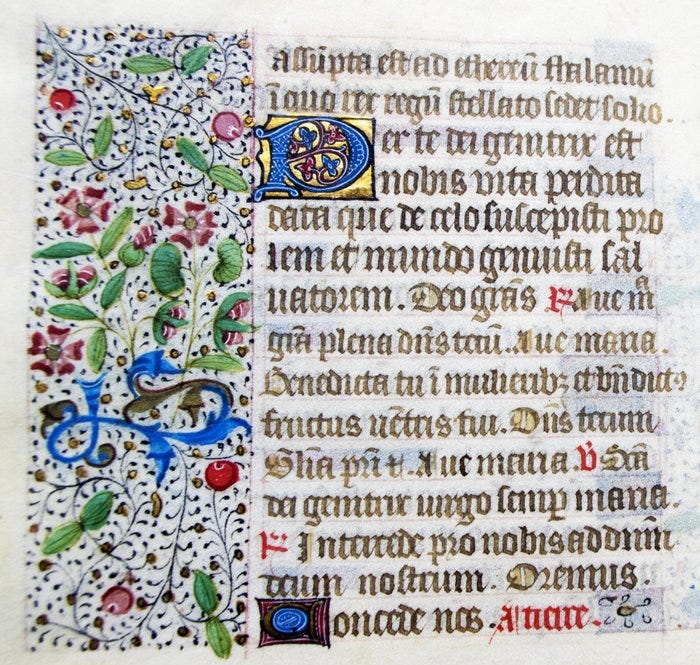 assūpta est ad ethereū thalamū
ī quo rex regū stellato sedet solio.
Per te dei genitrix est
nobis vita perdita
data que de celo suscepisti pro
lem et mundo genuisti sal
uatorem. Deo grās R Aue mᵃ
grā plena dn̄s tecū. Aue maria.
Benedicta tu ī mulieribꝫ et bn̄dictꝰ
fructus uētris tui. Dn̄s tecum
Glīa pr̄i ⁊. Aue maria. V Scā
dei genitrix uirgo semp maria.
R Intercede pro nobis ad dnm̄
deum nostrum. Oremus.
Concede nos.